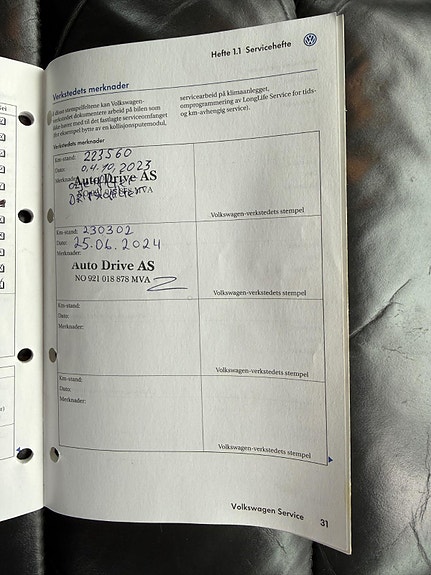 Hefte 1.1 Servicehefte
Verkstedets merknader
I disse stempelfeltene kan Volkswagen-
verkstedet dokumentere arbeid på bilen som
ikke hører med til det fastlagte serviceomfanget
(for eksempel bytte av en kollisjonsputemodul,
servicearbeid på klimaanlegget,
omprogrammering av LongLife Service for tids-
og km-avhengig service).
Verkstedets merknader
Km-stand: 223560
Dato: 04.10.2023
Merknader:
Auto Drive AS
MVA
Volkswagen-verkstedets stempel
Km-stand: 230302
Dato: 25.06.2024
Merknader:
Auto Drive AS
NO 921 018 878 MVA
Volkswagen-verkstedets stempel
Km-stand:
Dato:
Merknader:
Volkswagen-verkstedets stempel
Km-stand:
Dato:
Merknader:
Volkswagen-verkstedets stempel
Volkswagen Service 31